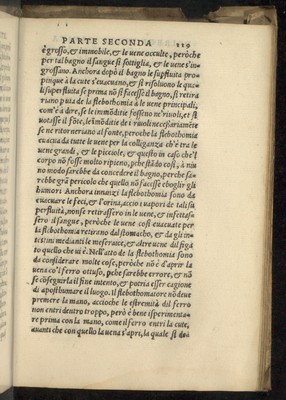 PARTE SECONDA 119
è grosso, & immobile, & le uene occulte, peroche
per tal bagno il sangue si sottiglia, & le uene s'in-
grossano. Anchora dopò il bagno le supfluita pro-
pinque à la cute s'euacueno, & si risoluono le qua
li superflusta se prima nõ si facesse il bagno, si retira
riano p uia de la flebothomia à le uene principali,
com'è à dire, se le immõditie fosseno ne'riuoli, et si
uotasse il fõte, le immõditie de i riuoli necessariamẽte
se ne ritorneriano al fonte, peroche la flebothomia
euacua da tutte le uene per la colliganza ch'è tra le
uene grandi, & le picciole, & questo in caso che'l
corpo nõ fosse molto ripieno, pche stãdo cosi, à niu
no modo sarebbe da concedere il bagno, perche sa-
rebbe grã pericolo che quello nõ facesse ebogliir gli
humori Anchora innanzi la flebothomia sono da
euacuare le feci, & l'orina, accio i uapori de tali su
perfluità, non se retirassero in le uene, & infettas-
sero il sangue, peroche le uene cosi euacuate per
la flebothomia retirano dal stomacho, & da gli in-
testini mediante le meseraice, & altre uene dil figa
to quello che ui è. Nell'atto de la flebothomia sono
da considerare molte cose, peroche nõ è d'aprir la
uena co'l ferro ottuso, pche sarebbe errore, & nõ
se cõseguirla il fine intento, & potria esser cagione
di aposthumare il luogo. il flebothomatore nõ deue
premere la mano, accioche le estremità dil ferro
non entri dentro troppo, però è bene isperimenta-
re prima con la mano, come il ferro entri la cute,
auanti che con quello la uena s'apri, la quale si de-